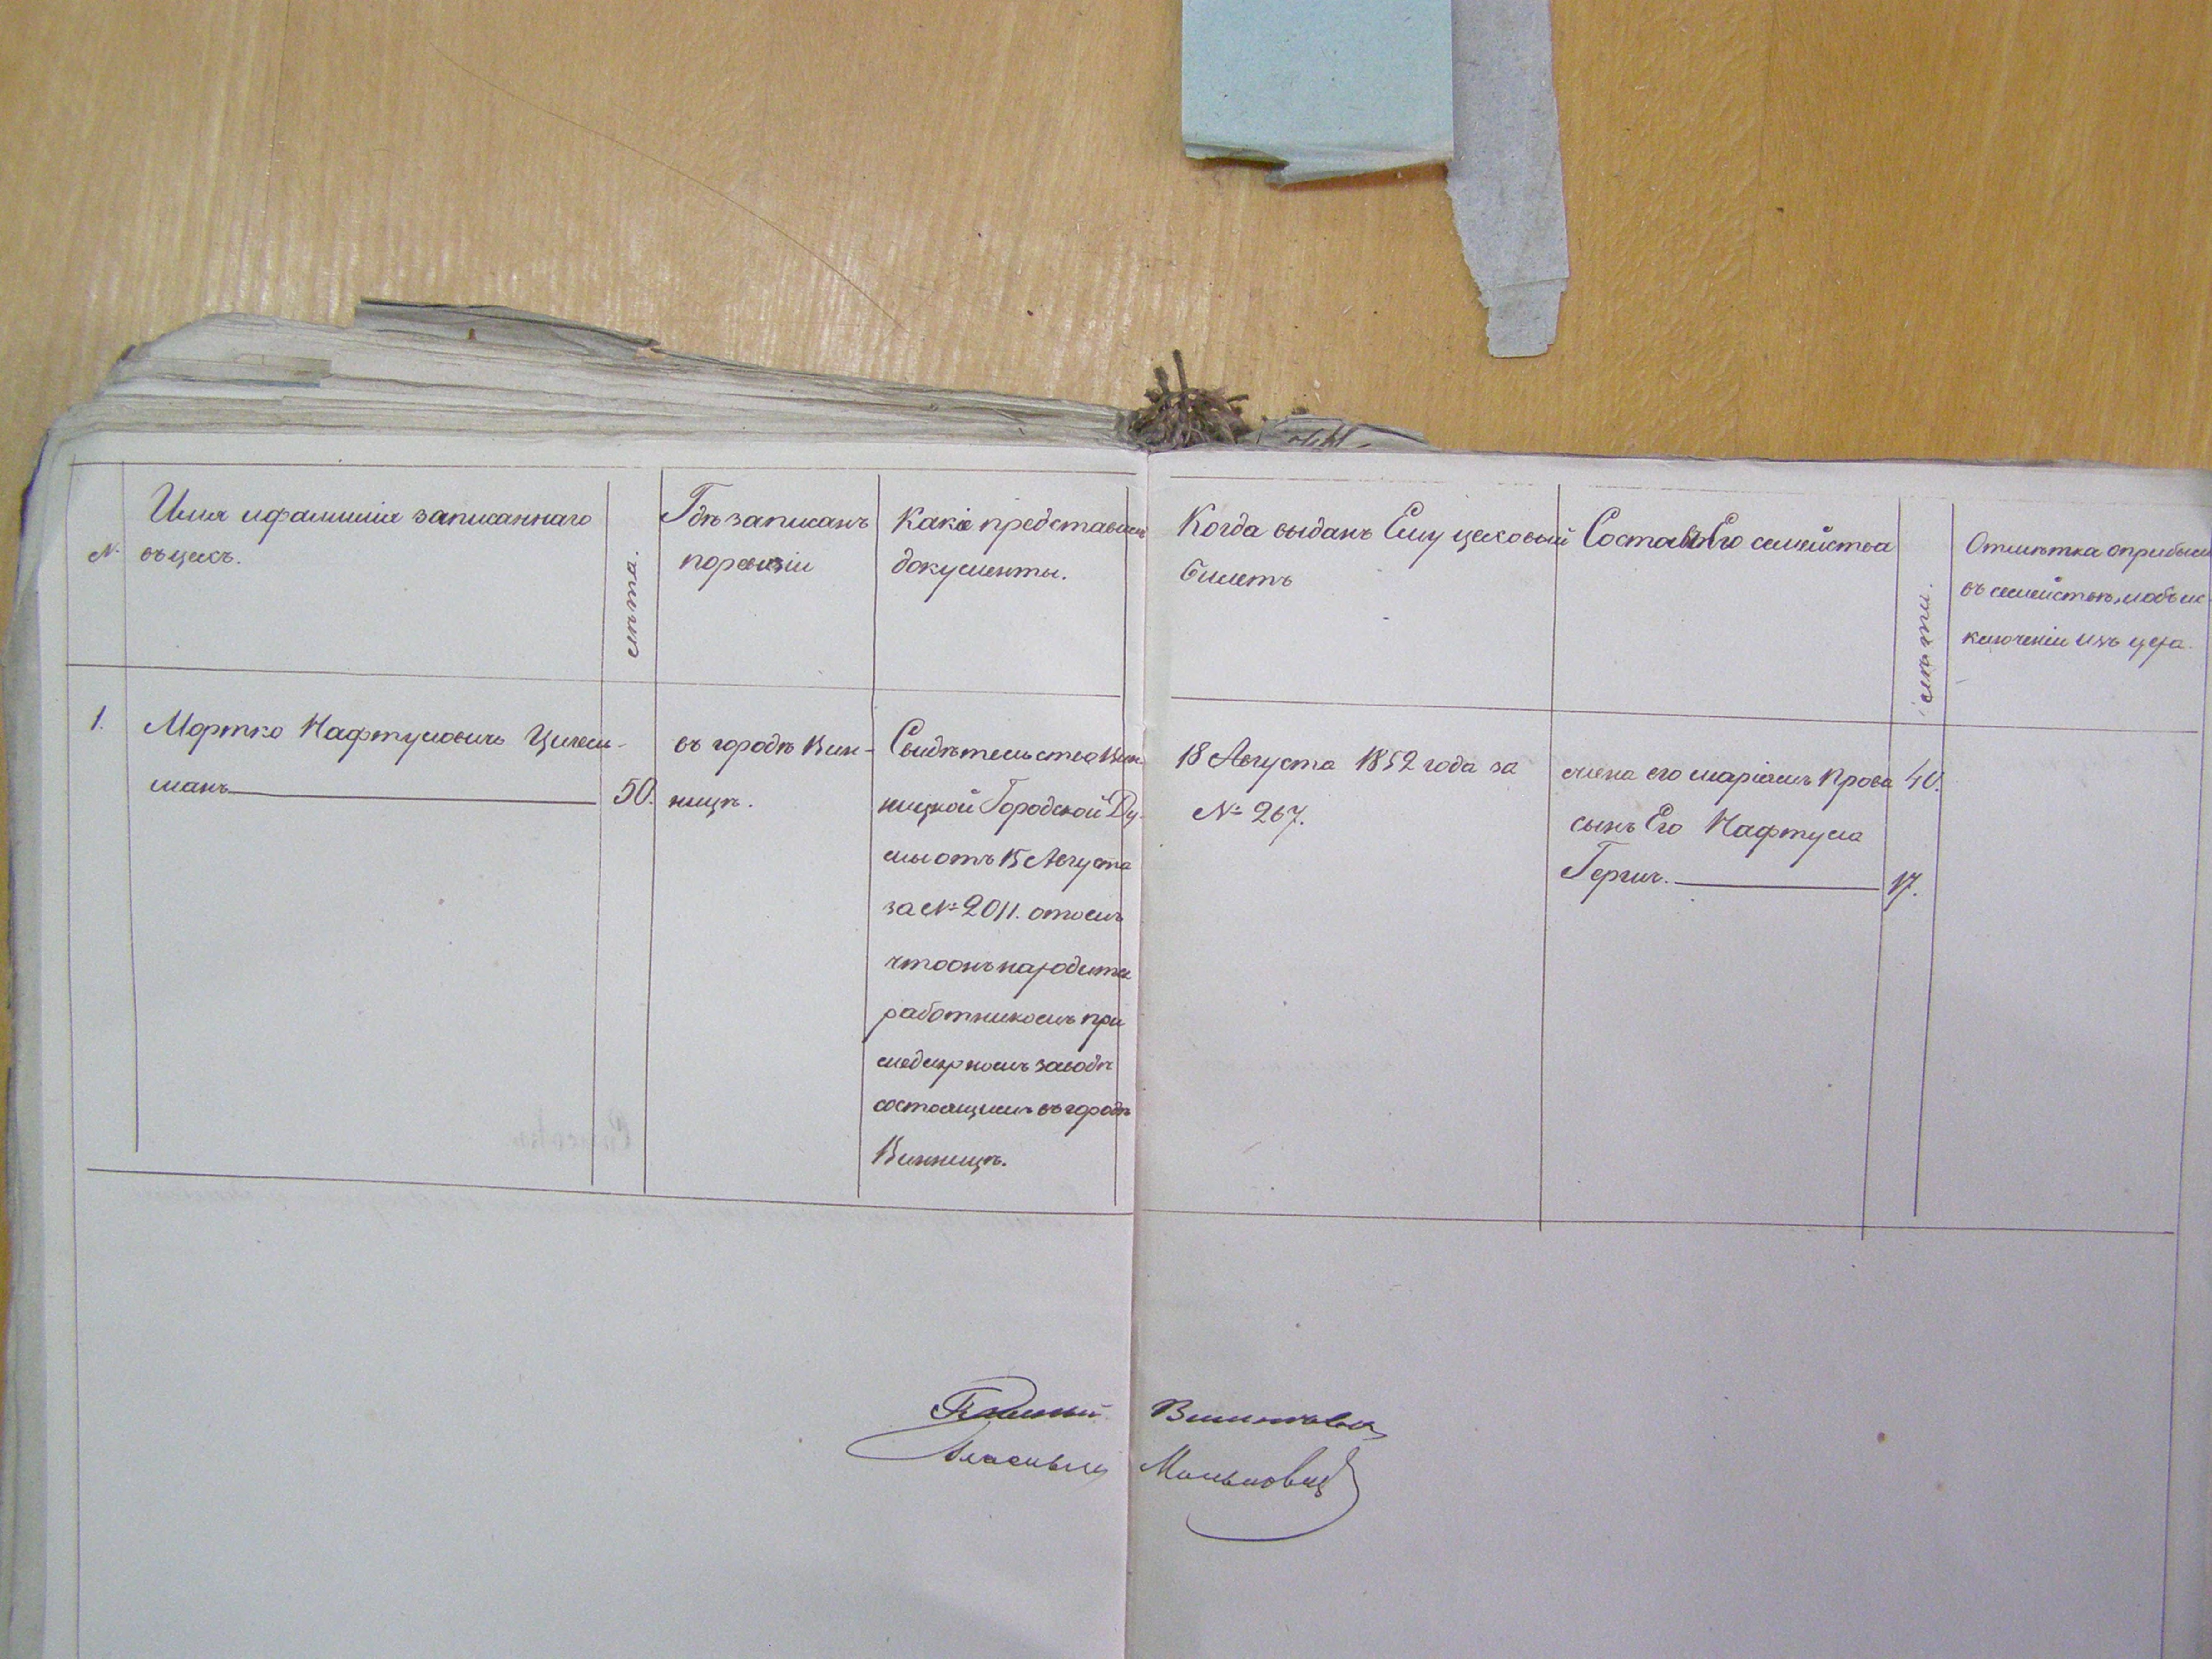 №
Имя и фамилия записаннаго
въ цехъ.
лѣта.
Гдѣ записанъ
по ревизіи
Какіе представилъ
документы.
Когда выданъ Ему цеховый
билетъ
Составъ Его семейства
лѣта.
Отмѣтка о прибыли
въ семействѣ, и объ ис-
ключеніи изъ цеха.
1.
Мортко Нафтуловичъ Цигель-
манъ
50.
въ городѣ Вин-
ницѣ.
Свидѣтельство Вин-
ницкой Городской Ду-
мы отъ 15 Августа
за № 2011. о томъ
что онъ находится
работникомъ при
медоварномъ заводѣ
состоящимъ въ городѣ
Винницѣ.
18 Августа 1852 года за
№ 267.
жена его Маріямъ
40.
сынъ Его Нафтула
Гершъ.
17.